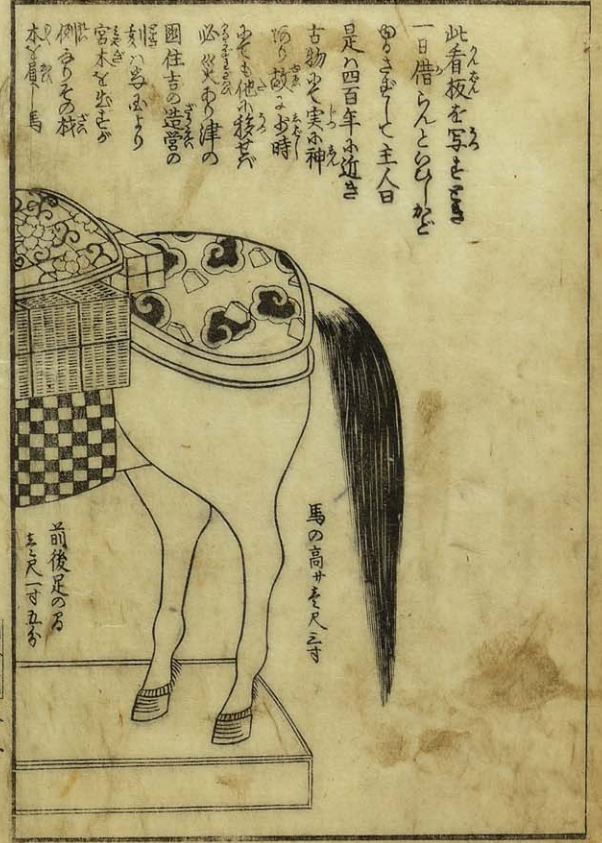 此看板を写すとき
一日借らんといひしかど
ゆるさずして主人曰
是ハ四百年に近き
古物にて実に神
あり故に少時
にても他に移せば
必災あり津の
國住吉の造営の
刻ハ当国より
宮木を出すが
例なりその材
本を居し馬
馬の高サ壱尺三寸
前後足の間
壱尺一寸五分